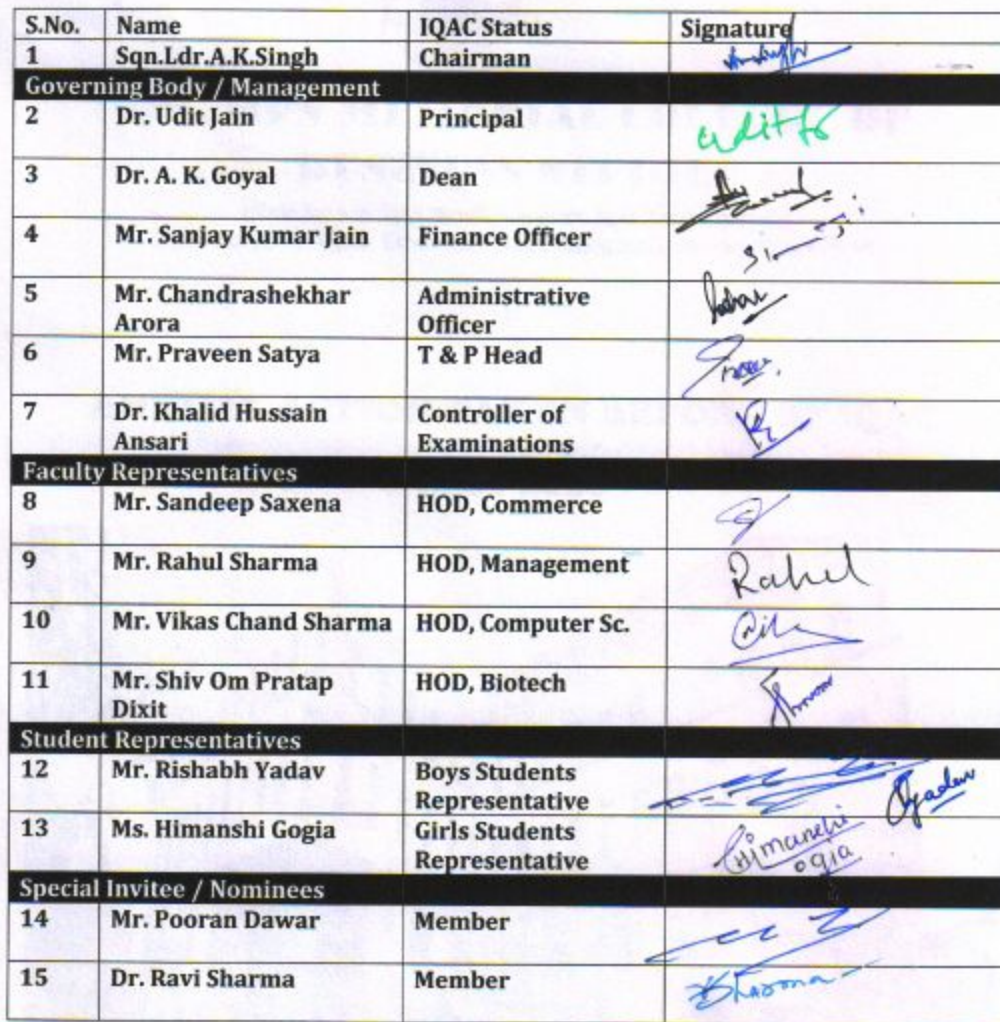 S.No. Name IQAC Status Signature
1 Sqn.Ldr.A.K.Singh Chairman
Governing Body / Management
2 Dr. Udit Jain Principal
3 Dr. A. K. Goyal Dean
4 Mr. Sanjay Kumar Jain Finance Officer
5 Mr. Chandrashekhar Administrative
Arora Officer
6 Mr. Praveen Satya T & P Head
7 Dr. Khalid Hussain Controller of
Ansari Examinations
Faculty Representatives
8 Mr. Sandeep Saxena HOD, Commerce
9 Mr. Rahul Sharma HOD, Management Rahul
10 Mr. Vikas Chand Sharma HOD, Computer Sc.
11 Mr. Shiv Om Pratap HOD, Biotech
Dixit
Student Representatives
12 Mr. Rishabh Yadav Boys Students
Representative
13 Ms. Himanshi Gogia Girls Students Himanshi
Representative Gogia
Special Invitee / Nominees
14 Mr. Pooran Dawar Member
15 Dr. Ravi Sharma Member